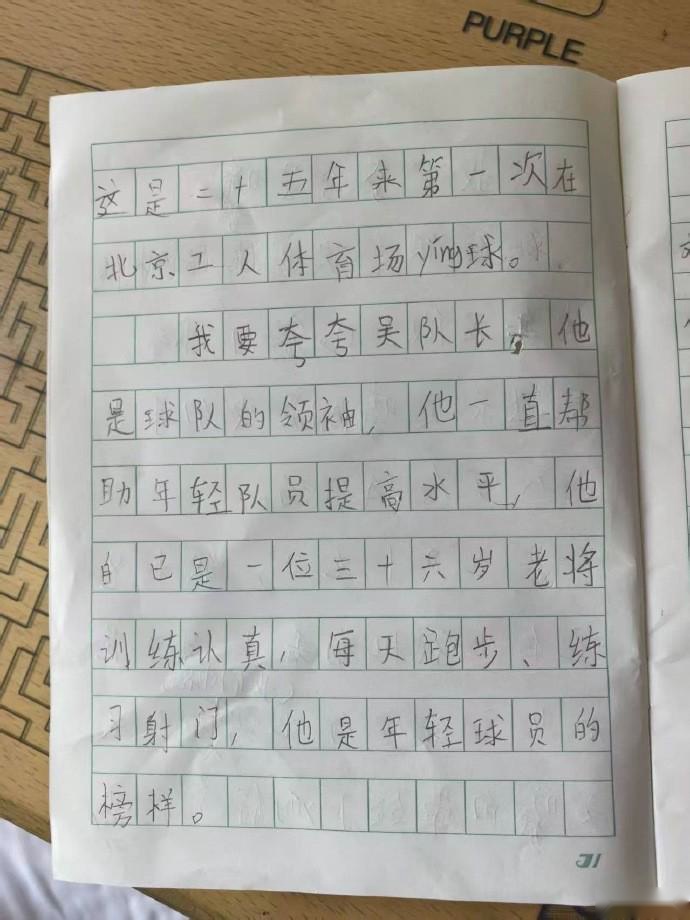 PURPLE
这是二十五年来第一次在
北京工人体育场ying球。
我要夸夸吴队长，他
是球队的领袖，他一直帮
助年轻队员提高水平，他
自已是一位三十六岁老将
训练认真，每天跑步、练
习射门，他是年轻球员的
榜样。